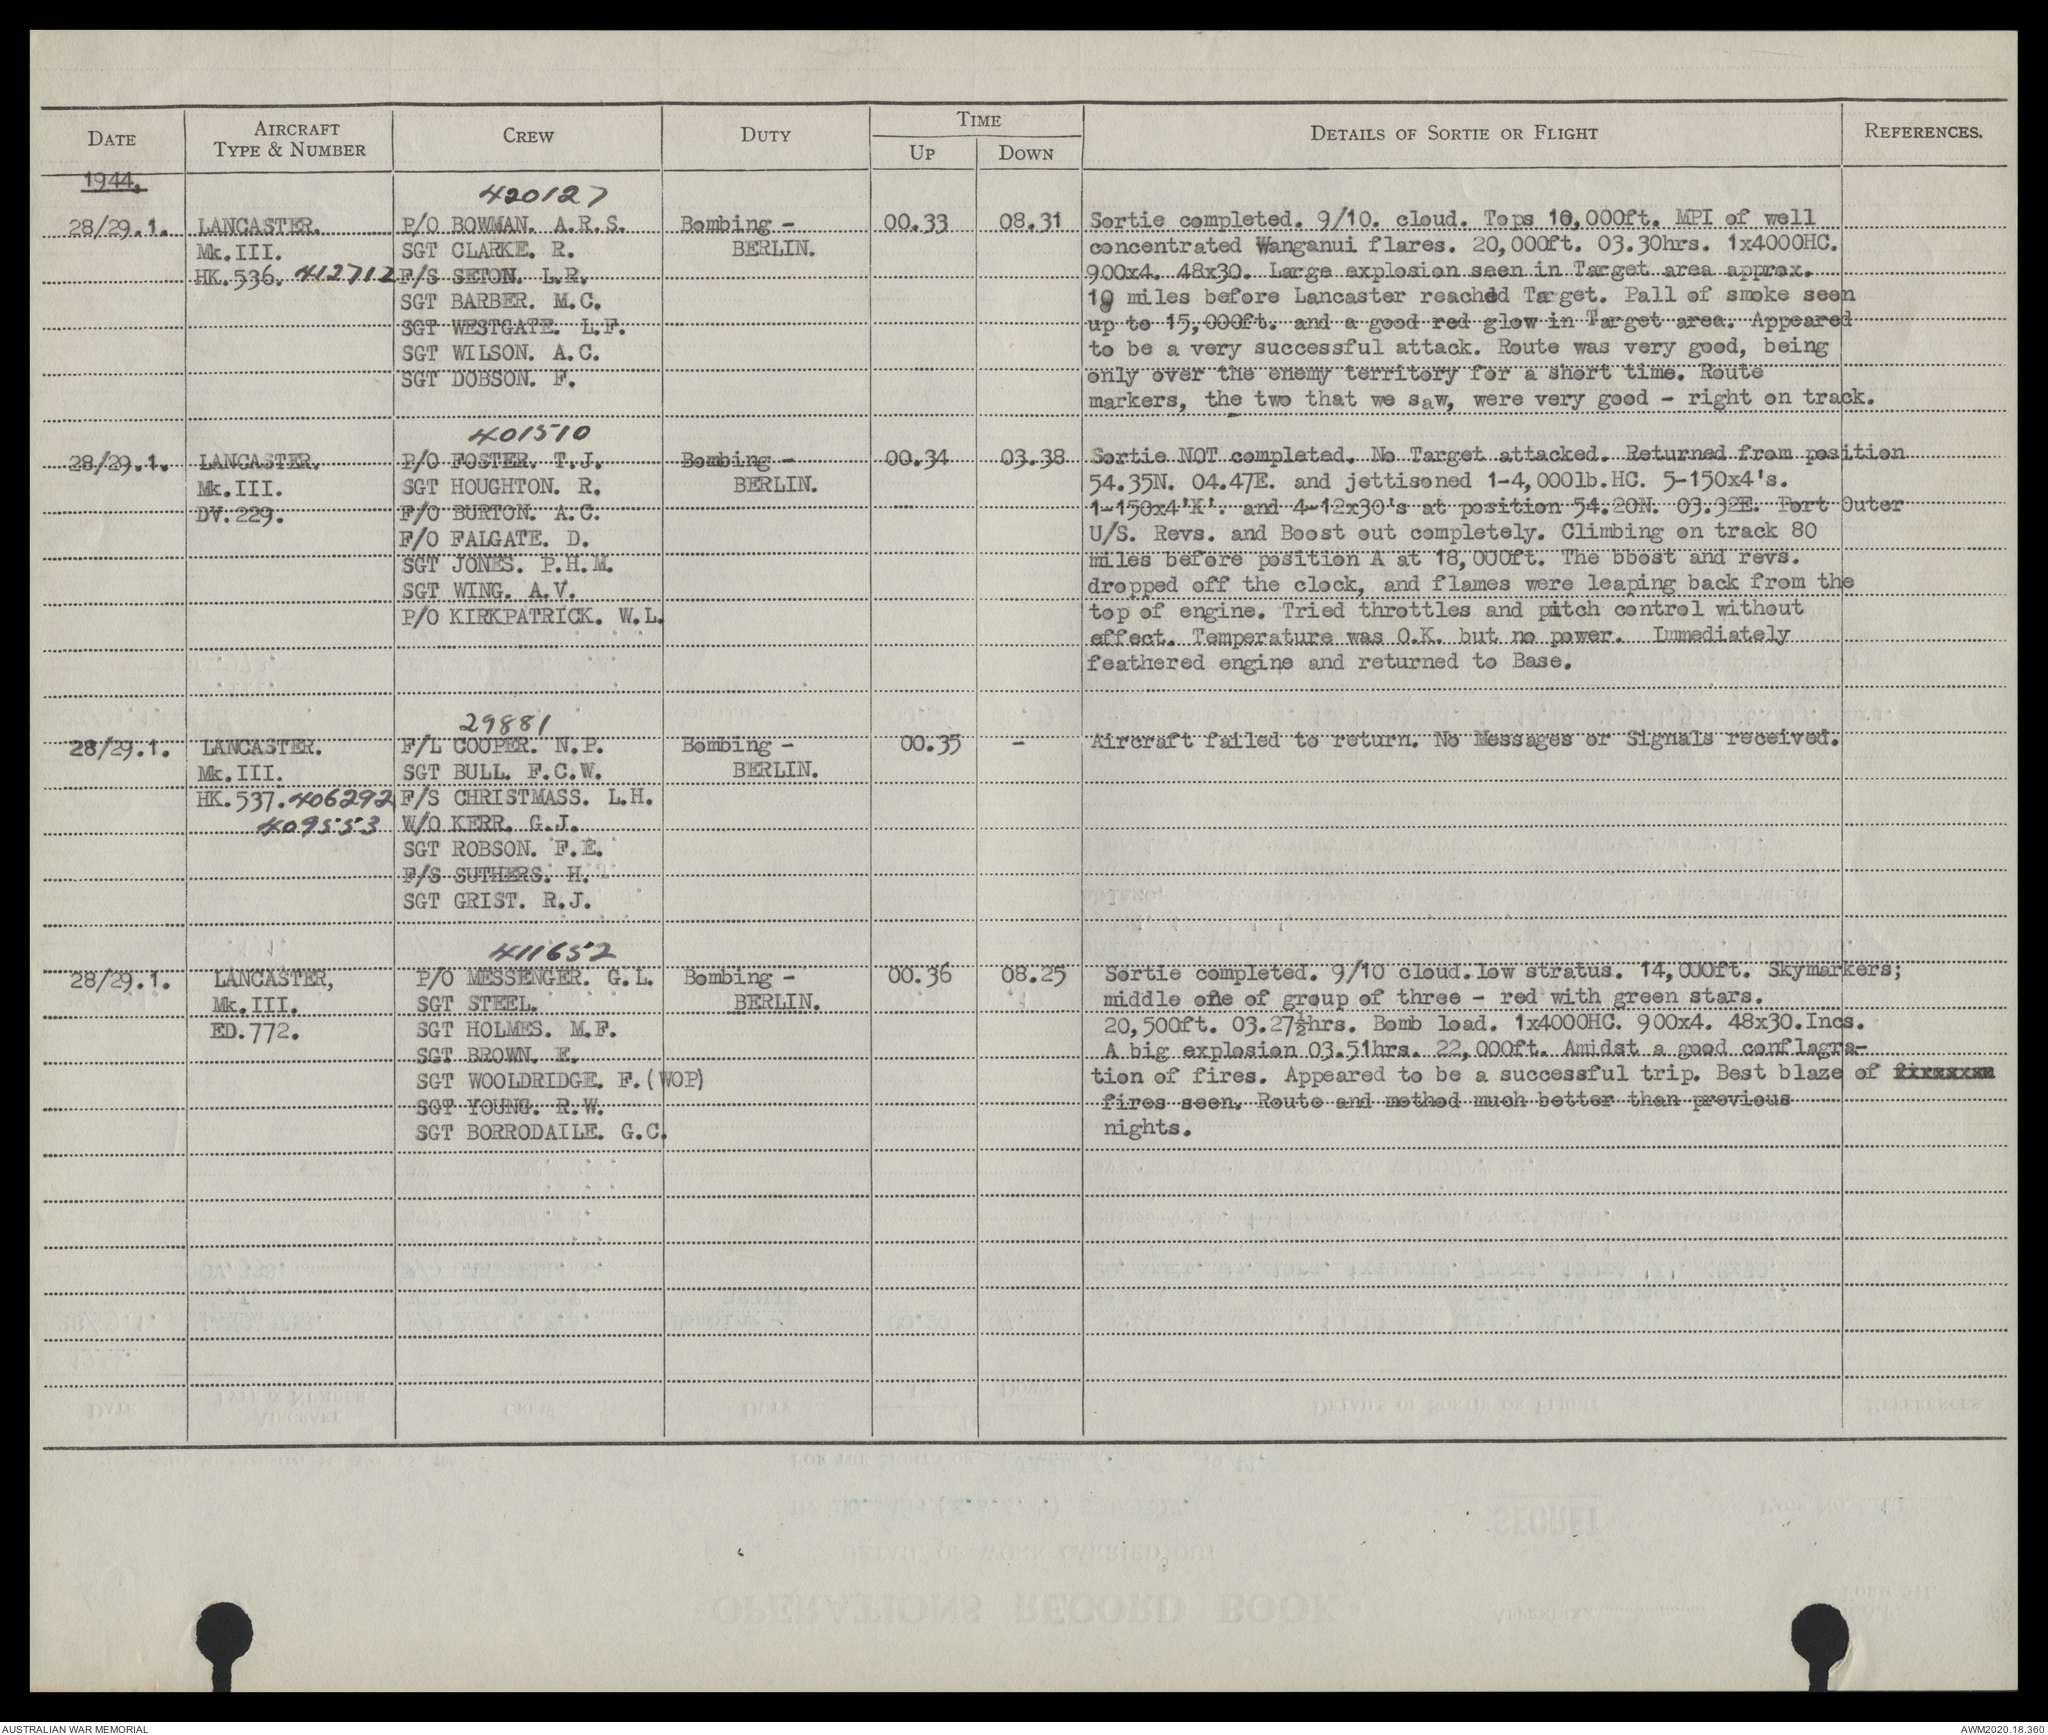 DATE AIRCRAFT TYPE & NUMBER CREW DUTY TIME UP DOWN DETAILS OF SORTIE OR FLIGHT REFERENCES.
1944.
420127
28/29.1. LANCASTER. P/O BOWMAN. A.R.S. Bombing - 00.33 08.31 Sortie completed. 9/10. cloud. Tops 10,000ft. MPI of well
Mk.III. SGT CLARKE. R. BERLIN. concentrated Wanganui flares. 20,000ft. 03.30hrs. 1x4000HC.
HK.536. 412712 F/S SETON. L.R. 900x4. 48x30. Large explosion seen in Target area approx.
SGT BARBER. M.C. 10 miles before Lancaster reached Target. Pall of smoke seen
SGT WESTGATE. L.F. up to 15,000ft. and a good red glow in Target area. Appeared
SGT WILSON. A.C. to be a very successful attack. Route was very good, being
SGT DOBSON. F. only over the enemy territory for a short time. Route
markers, the two that we saw, were very good - right on track.
401510
28/29.1. LANCASTER. P/O FOSTER. T.J. Bombing - 00.34 03.38 Sortie NOT completed. No Target attacked. Returned from position
Mk.III. SGT HOUGHTON. R. BERLIN. 54.35N. 04.47E. and jettisoned 1-4,000lb.HC. 5-150x4's.
DV.229. F/O BURTON. A.C. 1-150x4'X'. and 4-12x30's at position 54.20N. 03.32E. Port Outer
F/O FALGATE. D. U/S. Revs. and Boost out completely. Climbing on track 80
SGT JONES. P.H.M. miles before position A at 18,000ft. The bbost and revs.
SGT WING. A.V. dropped off the clock, and flames were leaping back from the
P/O KIRKPATRICK. W.L. top of engine. Tried throttles and pitch control without
effect. Temperature was O.K. but no power. Immediately
feathered engine and returned to Base.
29881
28/29.1. LANCASTER. F/L COOPER. N.P. Bombing - 00.35 - Aircraft failed to return. No Messages or Signals received.
Mk.III. SGT BULL. F.C.W. BERLIN.
HK.537. 406292 F/S CHRISTMASS. L.H.
409553 W/O KERR. G.J.
SGT ROBSON. F.E.
F/S SUTHERS. H.
SGT GRIST. R.J.
411652
28/29.1. LANCASTER, P/O MESSENGER. G.L. Bombing - 00.36 08.25 Sortie completed. 9/10 cloud.low stratus. 14,000ft. Skymarkers;
Mk.III. SGT STEEL. BERLIN. middle one of group of three - red with green stars.
ED.772. SGT HOLMES. M.F. 20,500ft. 03.27½hrs. Bomb load. 1x4000HC. 900x4. 48x30.Incs.
SGT BROWN. E. A big explosion 03.51hrs. 22,000ft. Amidst a good conflagra-
SGT WOOLDRIDGE. F.(WOP) tion of fires. Appeared to be a successful trip. Best blaze of
SGT YOUNG. R.W. fires seen. Route and method much better than previous
SGT BORRODAILE. G.C. nights.
AUSTRALIAN WAR MEMORIAL AWM2020.18.360